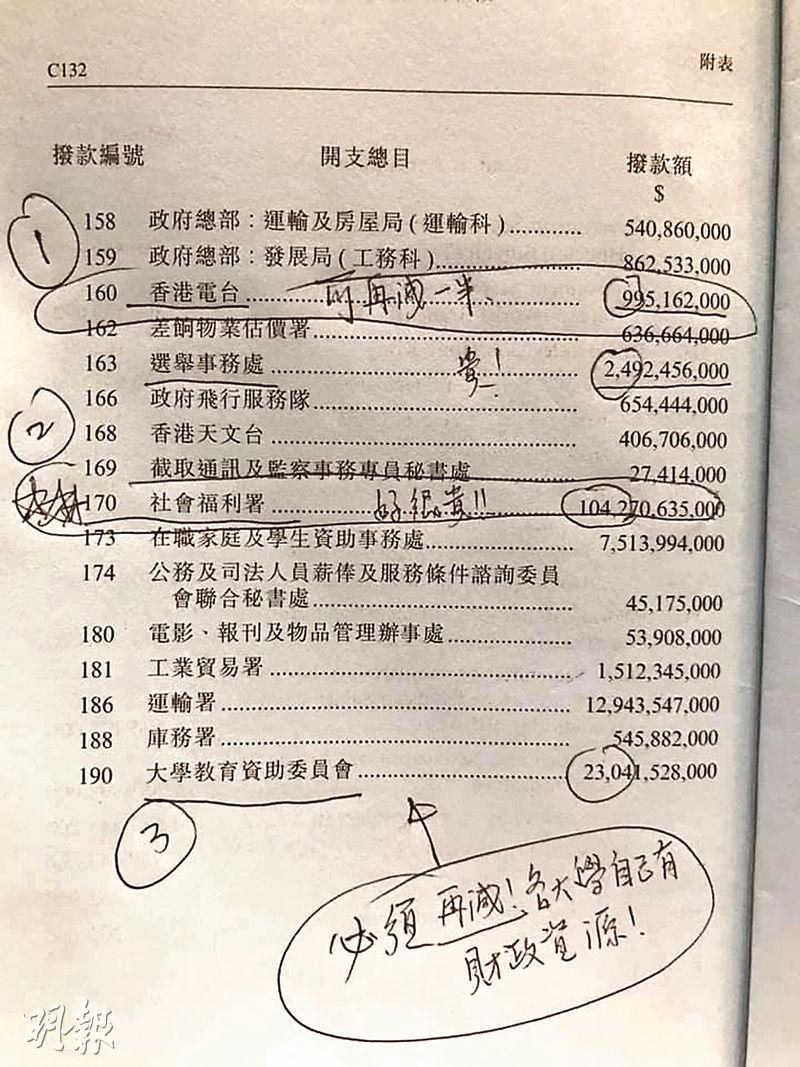 C132
附表
撥款編號 開支總目 撥款額
$
1
158 政府總部：運輸及房屋局 ( 運輸科 )............ 540,860,000
159 政府總部：發展局 ( 工務科 )...................... 862,533,000
160 香港電台.................................................. 995,162,000
可再減一半
162 差餉物業估價署........................................ 636,664,000
163 選舉事務處.............................................. 2,492,456,000
貴！
166 政府飛行服務隊........................................ 654,444,000
2
168 香港天文台.............................................. 406,706,000
169 截取通訊及監察事務專員秘書處.............. 27,414,000
170 社會福利署.............................................. 104,270,635,000
好很貴!!
173 在職家庭及學生資助事務處...................... 7,513,994,000
174 公務及司法人員薪俸及服務條件諮詢委員
會聯合秘書處........................................ 45,175,000
180 電影、報刊及物品管理辦事處.................. 53,908,000
181 工業貿易署.............................................. 1,512,345,000
186 運輸署...................................................... 12,943,547,000
188 庫務署...................................................... 545,882,000
190 大學教育資助委員會................................ 23,041,528,000
3
必須再減！各大學自己有
財政資源！
明報